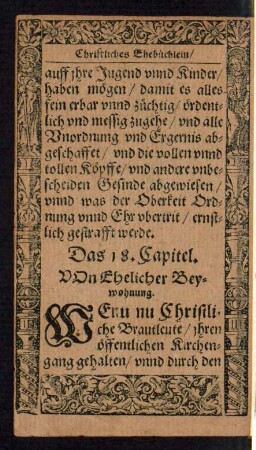 Christliches Ehebüchlein/
auff jhre Jugend vnnd Kinder
haben mögen/ damit es alles
fein erbar vnnd züchtig/ ördent-
lich vnd messig zugehe/ vnd alle
Vnordnung vnd Ergernis ab-
geschaffet/ vnd die vollen vnnd
tollen Köpffe/ vnd andere vnbe-
scheiden Gesinde abgewiesen/
vnnd was der Oberkeit Ord-
nung vnnd Ehr vbertrit/ ernst-
lich gestrafft werde.
Das 18. Capitel.
VOn Ehelicher Bey-
wohnung.
WEnn nu Christli-
che Brautleute/ jhren
öffentlichen Kirchen-
gang gehalten/ vnnd durch den